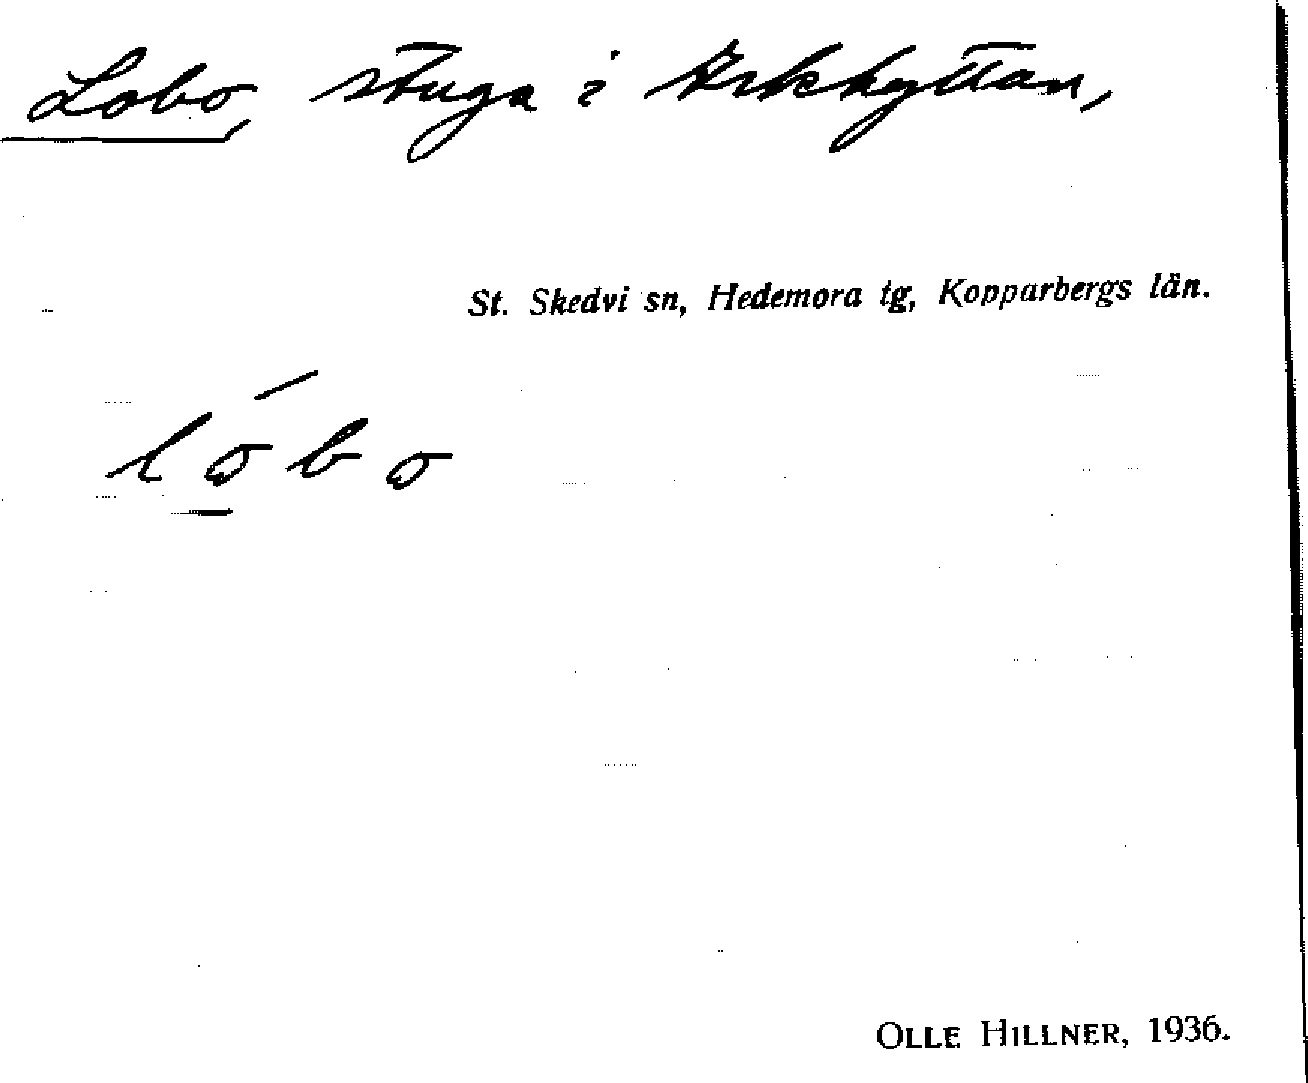 Lobo, stuga i Arkhyttan,
St. Skedvi sn, Hedemora tg, Kopparbergs län.
lo̱´bo
OLLE HILLNER, 1936.